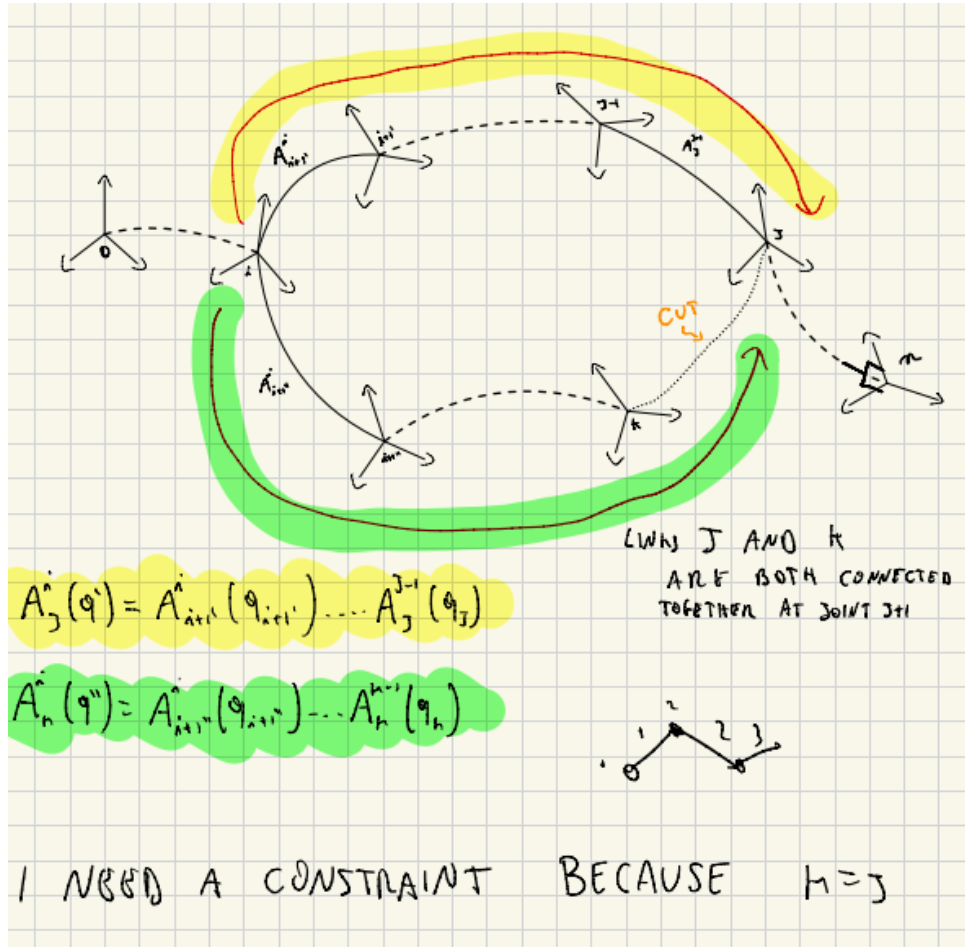 i+1'
J-1
A^i_{i+1'}
A^{J-1}_J
0
i
J
CUT
A^i_{i+1''}
n
i+1''
k
LINKS J AND k
ARE BOTH CONNECTED
TOGETHER AT JOINT J+1
A^i_J(q') = A^i_{i+1'}(q_{i+1'}) .... A^{J-1}_J(q_J)
A^i_k(q'') = A^i_{i+1''}(q_{i+1''}) ... A^{k-1}_k(q_k)
2
1 2 3
I NEED A CONSTRAINT BECAUSE k=J